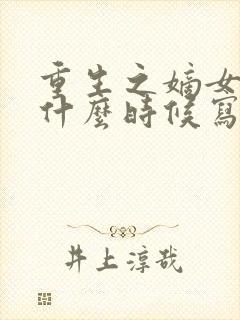 重生之嫡女
什麼時候寫
井上淳哉